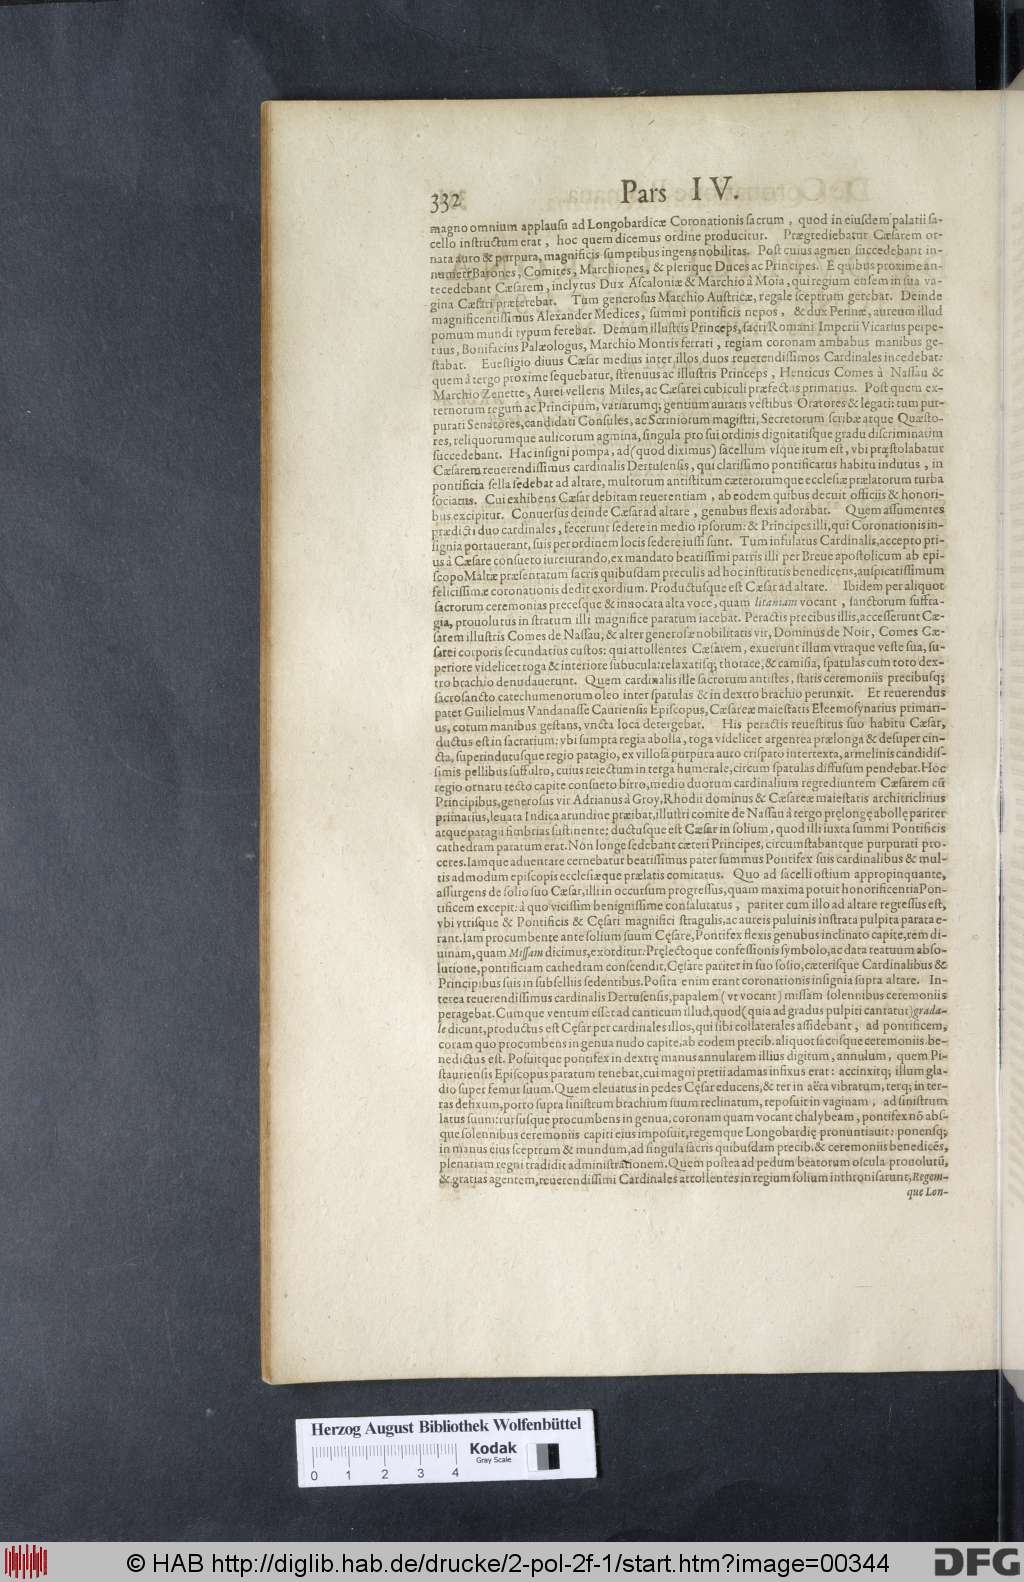 332 Pars IV.
magno omnium applausu ad Longobardicæ Coronationis sacrum, quod in eiusdem palatii sa-
cello instructum erat, hoc quem dicemus ordine producitur. Prægrediebatur Cæsarem or-
nata auro & purpura, magnificis sumptibus ingens nobilitas. Post cuius agmen succedebant in-
numeri Barones, Comites, Marchiones, & plerique Duces ac Principes. E quibus proxime an-
tecedebant Cæsarem, inclytus Dux Ascaloniæ & Marchio à Moia, qui regium ensem in sua va-
gina Cæsari præferebat. Tum generosus Marchio Austricæ, regale sceptrum gerebat. Deinde
magnificentissimus Alexander Medices, summi pontificis nepos, & dux Perinæ, aureum illud
pomum mundi typum ferebat. Demum illustris Princeps, sacri Romani Imperii Vicarius perpe-
tuus, Bonifacius Palæologus, Marchio Montis ferrati, regiam coronam ambabus manibus ge-
stabat. Euestigio diuus Cæsar medius inter illos duos reuerendissimos Cardinales incedebat:
quem à tergo proxime sequebatur, strenuus ac illustris Princeps, Henricus Comes à Nassau &
Marchio Zenette, Aurei velleris Miles, ac Cæsarei cubiculi præfectus primarius. Post quem ex-
ternorum regum ac Principum, variarumq; gentium auratis vestibus Oratores & legati: tum pur-
purati Senatores, candidati Consules, ac Scriniorum magistri, Secretorum scribæ atque Quæsto-
res, reliquorumque aulicorum agmina, singula pro sui ordinis dignitatisque gradu discriminatim
succedebant. Hac insigni pompa, ad (quod diximus) sacellum vsque itum est, vbi præstolabatur
Cæsarem reuerendissimus cardinalis Dertusensis, qui clarissimo pontificatus habitu indutus, in
pontificia sella sedebat ad altare, multorum antistitum cæterorumque ecclesiæ prælatorum turba
sociatus. Cui exhibens Cæsar debitam reuerentiam, ab eodem quibus decuit officiis & honori-
bus excipitur. Conuersus deinde Cæsar ad altare, genubus flexis adorabat. Quem assumentes
prædicti duo cardinales, fecerunt sedere in medio ipsorum: & Principes illi, qui Coronationis in-
signia portauerant, suis per ordinem locis sedere iussi sunt. Tum infulatus Cardinalis, accepto pri-
us à Cæsare consueto iureiurando, ex mandato beatissimi patris illi per Breue apostolicum ab epi-
scopo Maltæ præsentatum sacris quibusdam preculis ad hoc institutis benedicens, auspicatissimum
felicissimæ coronationis dedit exordium. Productusque est Cæsar ad altare. Ibidem per aliquot
sacrorum ceremonias precesque & inuocata alta voce, quam litaniam vocant, sanctorum suffra-
gia, prouolutus in stratum illi magnifice paratum iacebat. Peractis precibus illis, accesserunt Cæ-
sarem illustris Comes de Nassau, & alter generosæ nobilitatis vir, Dominus de Noir, Comes Cæ-
sarei corporis secundarius custos: qui attollentes Cæsarem, exuerunt illum vtraque veste sua, su-
periore videlicet toga & interiore subucula: relaxatisq; thorace, & camisia, spatulas cum toto dex-
tro brachio denudauerunt. Quem cardinalis ille sacrorum antistes, statis ceremoniis precibusq;
sacrosancto catechumenorum oleo inter spatulas & in dextro brachio perunxit. Et reuerendus
pater Guilielmus Vandanasse Cauriensis Episcopus, Cæsareæ maiestatis Eleemosynarius primari-
us, cotum manibus gestans, vncta loca detergebat. His peractis reuestitus suo habitu Cæsar,
ductus est in sacrarium: vbi sumpta regia abolla, toga videlicet argentea prælonga & desuper cin-
cta, superindutusque regio patagio, ex villosa purpura auro crispato intertexta, armelinis candidis-
simis pellibus suffulto, cuius reiectum in terga humerale, circum spatulas diffusum pendebat. Hoc
regio ornatu tecto capite consueto birro, medio duorum cardinalium regrediuntem Cæsarem cũ
Principibus, generosus vir Adrianus à Groy, Rhodii dominus & Cæsareæ maiestatis architriclinus
primarius, leuata Indica arundine præibat, illustri comite de Nassau à tergo pręlongę abollę pariter
atque patagii fimbrias sustinente: ductusque est Cæsar in solium, quod illi iuxta summi Pontificis
cathedram paratum erat. Non longe sedebant cæteri Principes, circumstabantque purpurati pro-
ceres. Iamque aduentare cernebatur beatissimus pater summus Pontifex suis cardinalibus & mul-
tis admodum episcopis ecclesiæque prælatis comitatus. Quo ad sacelli ostium appropinquante,
assurgens de solio suo Cæsar, illi in occursum progressus, quam maxima potuit honorificentia Pon-
tificem excepit: à quo vicissim benignissime consalutatus, pariter cum illo ad altare regressus est,
vbi vtrisque & Pontificis & Cęsari magnifici stragulis, ac aureis puluinis instrata pulpita parata e-
rant. Iam procumbente ante solium suum Cęsare, Pontifex flexis genubus inclinato capite, rem di-
uinam, quam Missam dicimus, exorditur: Prelectoque confessionis symbolo, ac data reatuum abso-
lutione, pontificiam cathedram conscendit, Cęsare pariter in suo solio, cæterisque Cardinalibus &
Principibus suis in subselliis sedentibus. Posita enim erant coronationis insignia supra altare. In-
terea reuerendissimus cardinalis Dertusensis, papalem (vt vocant) missam solennibus ceremoniis
peragebat. Cumque ventum esset ad canticum illud, quod (quia ad gradus pulpiti cantatur) grada-
le dicunt, productus est Cęsar per cardinales illos, qui sibi collaterales assidebant, ad pontificem,
coram quo procumbens in genua nudo capite, ab eodem precib. aliquot sacrisque ceremoniis be-
nedictus est. Posuitque pontifex in dextrę manus annularem illius digitum, annulum, quem Pi-
stauriensis Episcopus paratum tenebat, cui magni pretii adamas infixus erat: accinxitq; illum gla-
dio super femur suum. Quem eleuatus in pedes Cęsar educens, & ter in aëra vibratum, terq; in ter-
ras defixum, porro supra sinistrum brachium suum reclinatum, reposuit in vaginam, ad sinistrum
latus suum: rursusque procumbens in genua, coronam quam vocant chalybeam, pontifex nõ abs-
que solennibus ceremoniis capiti eius imposuit, regemque Longobardię pronuntiauit: ponensq;
in manus eius sceptrum & mundum, ad singula sacris quibusdam precib. & ceremoniis benedicẽs,
plenariam regni tradidit administrationem. Quem postea ad pedum beatorum oscula prouolutũ,
& gratias agentem, reuerendissimi Cardinales attollentes in regium solium inthronisarunt, Regem-
que Lon-
Herzog August Bibliothek Wolfenbüttel
Kodak
Gray Scale
0 1 2 3 4
© HAB http://diglib.hab.de/drucke/2-pol-2f-1/start.htm?image=00344
DFG